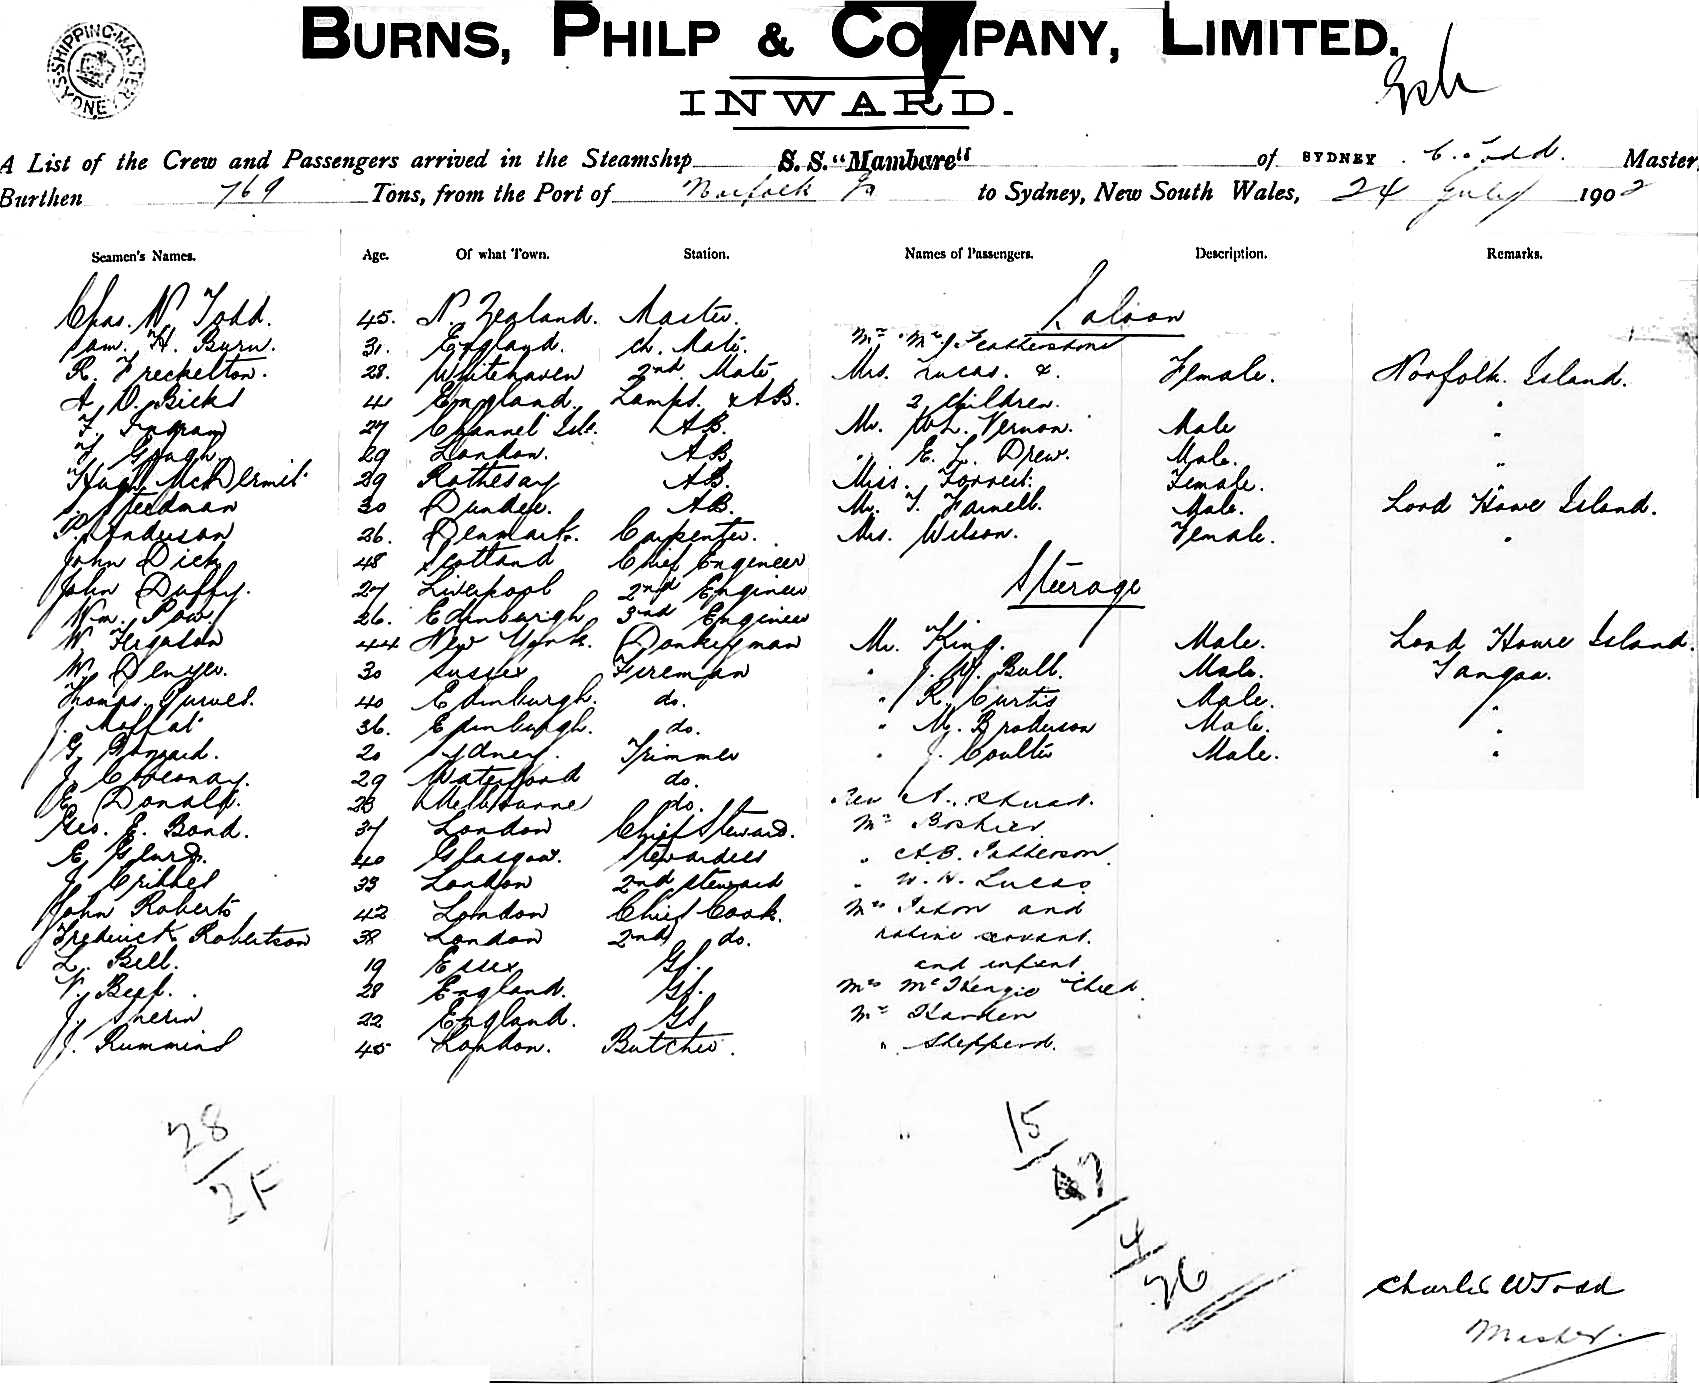 SHIPPING MASTER SYDNEY
BURNS, PHILP & COMPANY, LIMITED.
INWARD.
A List of the Crew and Passengers arrived in the Steamship S. S. "Mambare" of SYDNEY C. Todd. Master,
Burthen 769 Tons, from the Port of Norfolk Is to Sydney, New South Wales, 24 July 1902
Seamen's Names. Age. Of what Town. Station. Names of Passengers. Description. Remarks.
Saloon
Chas. W. Todd. 45. N. Zealand. Master.
Sam. H. Burn. 31. England. Ch. Mate. Mr Mrs J Featherstone
R. Freckelton. 28. Whitehaven 2nd Mate Mrs. Lucas. &. Female. Norfolk. Island.
A. D. Bicks 41 England. Lamps. & AB. 2 Children. "
F. Ingram 27 Channel Isls. AB. Mr. Wh. Vernon. Male "
J. Gough. 29 London. AB " E. L. Drew. Male. "
Hugh McDermit 29 Rothesay AB. Miss. Forrest. Female. "
Steedman 30 Dundee. AB. Mr. T. Farnell. Male. Lord Howe Island.
P. Anderson 26. Denmark. Carpenter. Mrs. Wilson. Female. "
John Dick 48 Scotland Chief Engineer
Steerage
John Duffy. 27 Liverpool 2nd Engineer
Wm. Pow. 26. Edinburgh 3rd Engineer
W. Ferguson 44 New York. Donkeyman Mr. King. Male. Lord Howe Island.
W. Denyer. 30 Sussex Fireman " J. W. Bull. Male. Tangoa.
Thomas. Purves. 40 Edinburgh. do. " R. Curtis Male. "
J. Moffat 36. Edinburgh. do. " M. Broderson Male. "
G. 20 Sydney. Trimmer " J. Coulter Male. "
J. 29 Waterford do.
E. Donald. 23 Melbourne do. Rev A. Stuart.
Geo. E. Bond. 37 London Chief Steward. Mr Boshier
E. 40 Glasgow. Stewardess " A. B. Patterson
J. Cribbes 33 London 2nd Steward " W. H. Lucas
John Roberts 42 London Chief Cook. Mrs Paton and
Frederick Robertson 38 London 2nd do. native servant.
L. Bell. 19 Essex GS. and infant.
V. 28 England. GS. Mrs McKenzie Child
J. Sherin 22 England. GS Mr Harden
J. Rummins 45 London. Butcher. " Shepperd.
28
2F
15
7
4
26
Charles W Todd
Master.